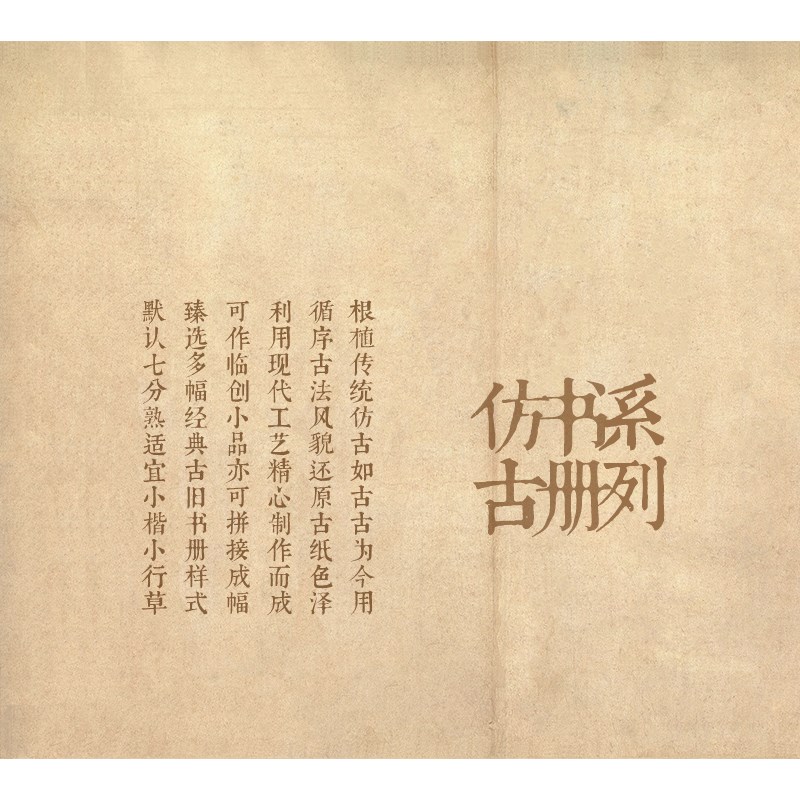 仿古
书册
系列
根植传统仿古如古古为今用
循序古法风貌还原古纸色泽
利用现代工艺精心制作而成
可作临创小品亦可拼接成幅
臻选多幅经典古旧书册样式
默认七分熟适宜小楷小行草